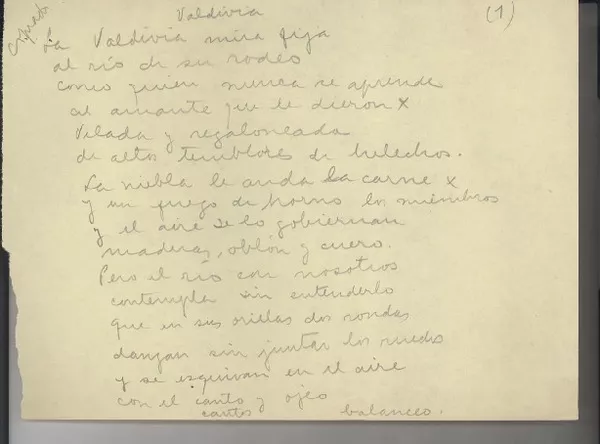 Valdivia
(1)
copiado
La Valdivia mira fija
al río de su rodeo
como quien nunca se aprende
al amante que le dieron x
Velada y regaloneada
de altos temblores de helechos.
La niebla le anda la carne x
y un fuego de horno los miembros
y el aire se lo gobiernan
maderas, oblón y cuero.
Pero el río con nosotros
contempla sin entenderlo
que en sus orillas dos rondas
danzan sin juntar los ruedos
y se esquivan en el aire
con el canto y ojeo
cantos balanceo.